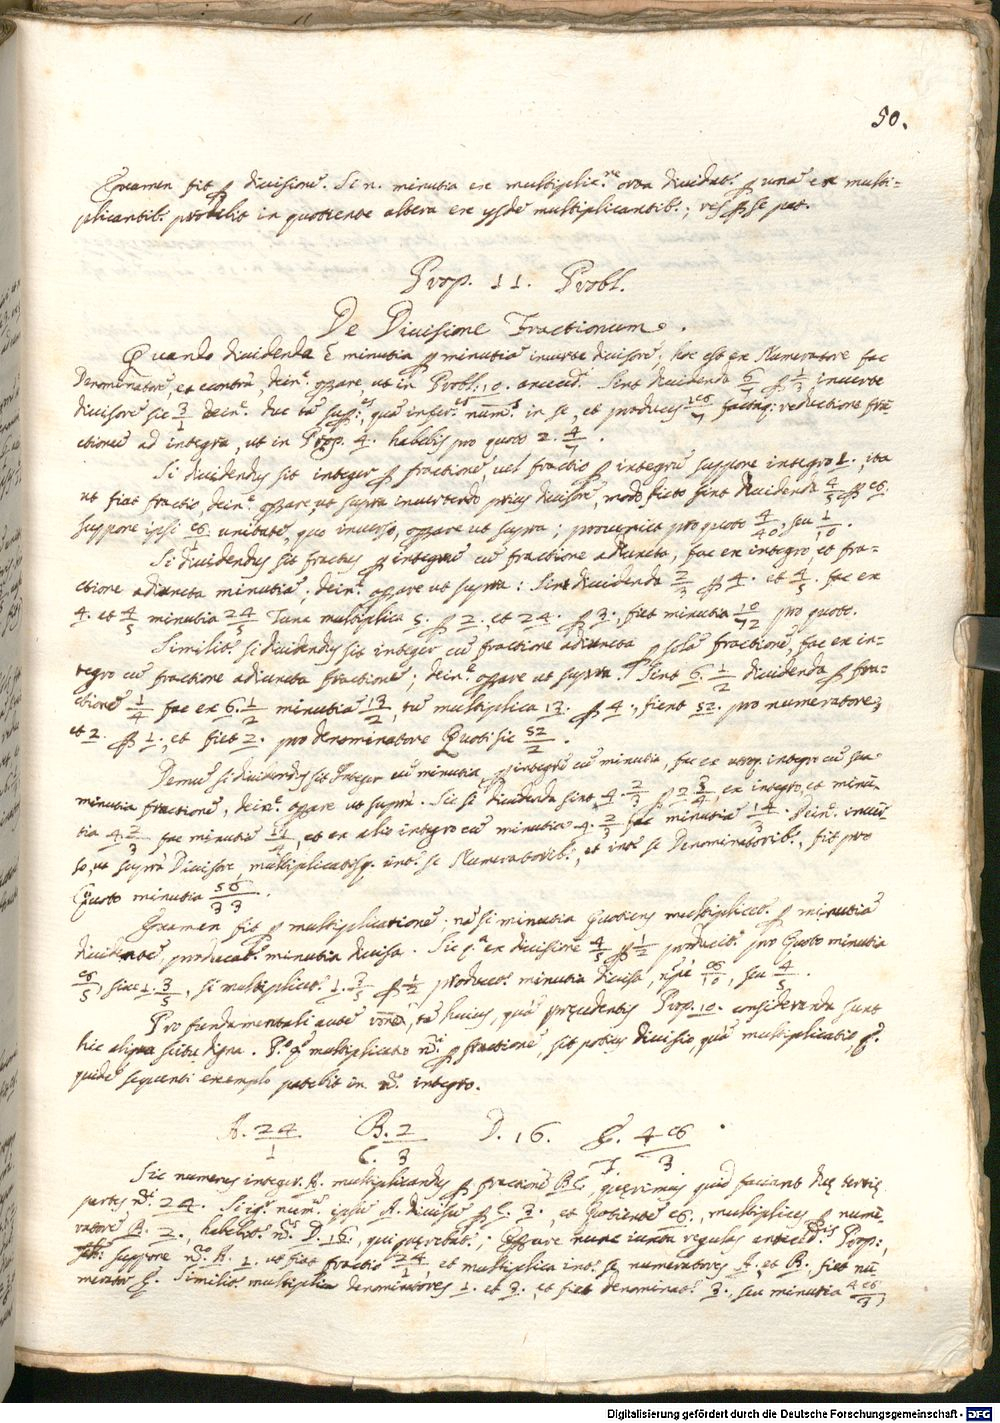 50.
Examen fit ꝑ divisione. Si n. minutia ex multiplic.ne orta dividat.r ꝑ unã ex multi=
plicantib. prodibit in quotiente altera ex ijsdẽ multiplicantib.; res ꝑ se pat.
Prop. 11. Probl.
De Divisione Fractionum.
Quando dividenda ẽ minutia ꝑ minutiã inverte divisorẽ, hoc est ex Numeratore fac
Denominatorẽ, et contrà, dein.e oꝑare, ut in Probl. 10. anteced. Sint dividenda 6/7 ꝑ 1/3 inverte
divisorẽ sic 3/1 dein.e duc tã sup:es, quã infer.es num.s in se, et produces 18/7 factaq; reductione frã
ctionis ad integra, ut in Prop. 4. habebis pro quoto 2. 4/7.
Si dividendus sit integer ꝑ fractionẽ, vel fractio ꝑ integrũ suppone integro 1., ita
ut fiat fractio, dein.e oꝑare ut supra invertendo prius divisorẽ, modo dicto sint dividenda 4/5 ꝑ 8.
suppone ipsi 8/1 unitatẽ, quo inverso, oꝑare ut supra; proveniet pro quoto 4/40, seu 1/10.
Si dividendus sit fractus ꝑ integrũ cũ fractione adiuncta, fac ex integro, et fra=
ctione adiuncta minutiã, dein.e oꝑare ut supra: Sint dividenda 2/3 ꝑ 4. et 4/5. fac ex
4. et 4/5 minutia 24/5 Tunc multiplica 5. ꝑ 2. et 24. ꝑ 3., fiet minutia 10/72 pro quoto.
Similit.r si dividendus sit integer cũ fractione adiuncta ꝑ solã fractionẽ, fac ex in=
tegro cũ fractione adiuncta fractionẽ; dein.e oꝑare ut supra. Sint 6. 1/2 dividenda ꝑ fra=
ctionẽ 1/4 fac ex 6. 1/2 minutiã 13/2, tũ multiplica 13. ꝑ 4., fient 52. pro numeratore;
et 2. ꝑ 1., et fiet 2. pro denominatore Quoti sic 52/2.
Demũ si dividendus sit integer cũ minutia, ꝑ integrũ cũ minutia, fac ex utroq. integro cũ sua
minutia fractionẽ, dein.e oꝑare ut suprà. Sic si dividenda sint 4. 2/3 ꝑ 2 3/4, ex integro, et minu
tia 4. 2/3 fac minutiã 11/4, et ex alio integro cũ minutia 4. 2/3 fac minutiã 14/3. Dein.e inver
so, ut suprà Divisore, multiplicatisq. int.r se Numeratorib., et int.r se Denominatorib., fit pro
Quoto minutia 56/33.
Examen fit ꝑ multiplicationẽ: nã si minutia Quotiens multiplicet.r ꝑ minutiã
dividentẽ, producat.r minutia divisa. Sic q.a ex divisione 4/5 ꝑ 1/2 producit.r pro Quoto minutia
8/5, sive 1. 3/5, si multiplicet.r 1. 3/5 ꝑ 1/2 producet.r minutia divisa, nẽpè 8/10, seu 4/5.
Pro fundamentali autẽ tã huius, quã præcedentis Prop. 10. consideranda sunt
hic aliqua scitu digna. P.o q.d multiplicatio n.i ꝑ fractionẽ, sit potius divisio, quã multiplicatio, q.d
quidẽ sequenti exemplo patebit in n.o integro.
A. 24/1 B. 2 / C. 3 D. 16. E. 48 / F. 3.
Sic numerus integer A. multiplicandus ꝑ fractionẽ B C. quęrimus quid faciant duę tertię
partes n.i 24. Si ig.r num.s ipse A. divisus ꝑ C. 3., et Quotientẽ 8., multiplices ꝑ nume
ratorẽ B. 2., habebit.r n.s D. 16., qui quęrebat.r; Oꝑare nunc iuxta regulas anteced.is Prop:,
scil: suppone n.o A. 1. ut fiat fractio 24/1, et multiplica int.r se numeratores A. et B., fiet nu
merator E. Similit.r multiplica denominatores 1. et 3. et fiet denominat.r 3., seu minutia 48/3,
Digitalisierung gefördert durch die Deutsche Forschungsgemeinschaft - DFG